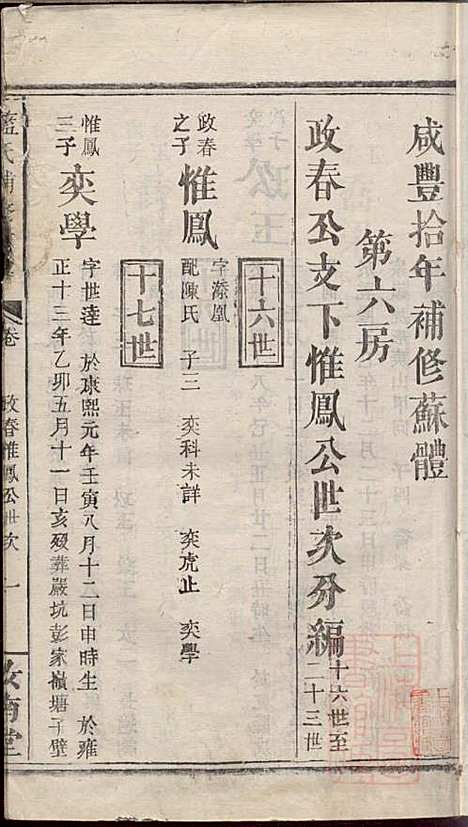 咸豐拾年補修蘇體
第六房
政春公支下惟鳳公世次分編
十六世至
二十三世
十六世
政春
之子
惟鳳
字潻凰
配陳氏 子三 奕科未詳 奕虎止 奕學
十七世
惟鳳
三子
奕學
字世逹 於康熙元年壬寅八月十二日申時生 於雍
正十三年乙卯五月十一日亥歿葬嚴坑彭家嶺塘子壁
卷
政春惟鳳公世次 一
汝南堂